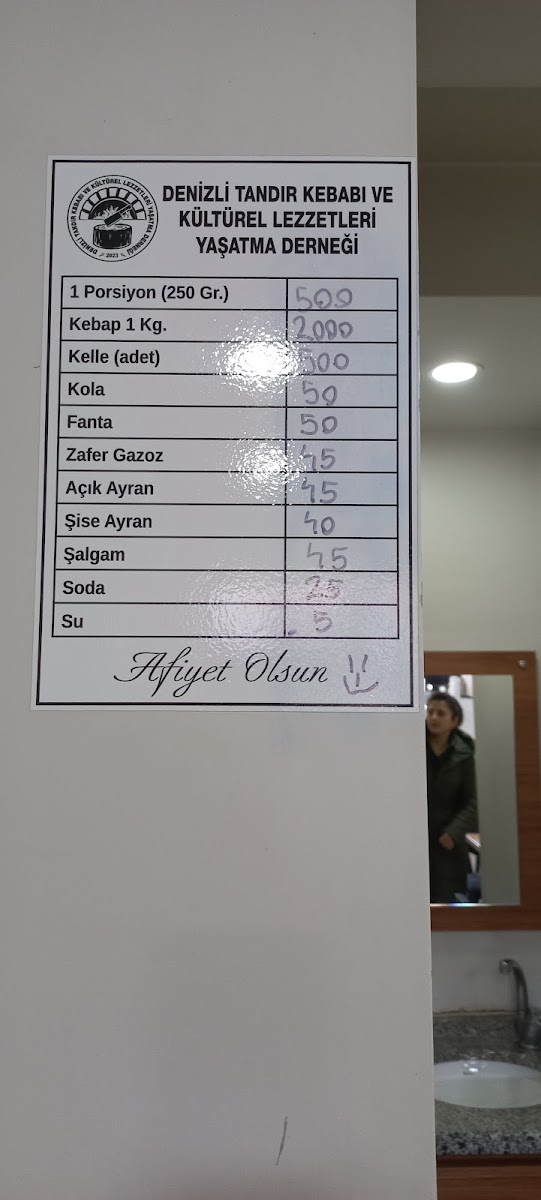 DENİZLİ TANDIR KEBABI VE KÜLTÜREL LEZZETLERİ YAŞATMA DERNEĞİ
2023
DENİZLİ TANDIR KEBABI VE
KÜLTÜREL LEZZETLERİ
YAŞATMA DERNEĞİ
1 Porsiyon (250 Gr.) 500
Kebap 1 Kg. 2000
Kelle (adet)
Kola 50
Fanta 50
Zafer Gazoz 45
Açık Ayran 45
Şise Ayran 40
Şalgam 45
Soda 25
Su 5
Afiyet Olsun